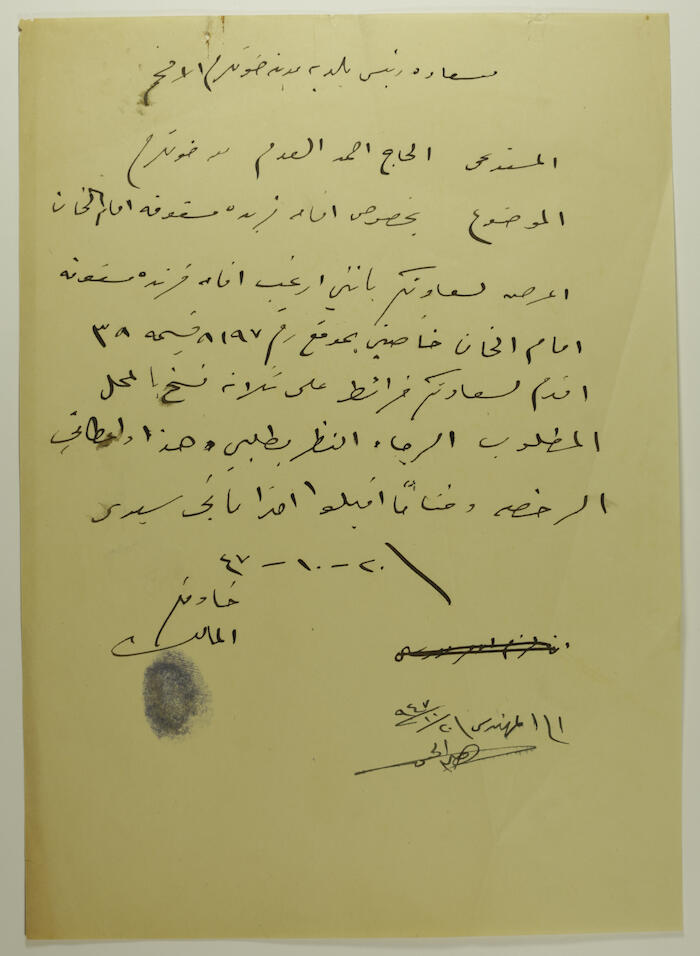 سعادة رئيس بلدية مدينة طولكرم الافخم
المستدعي الحاج احمد العدم من طولكرم
الموضوع بخصوص اقامة فرنده مسقوفه امام الخان
اعرض لسعادتكم بانني ارغب اقامة فرنده مسقوفه
امام الخان خاصتي بموقع رقم ٨١٩٧ قسيمه ٣٨
اقدم لسعادتكم خرائط على ثلاثة نسخ بالمحل
المطلوب الرجاء النظر بطلبي هذا واعطائي
الرخصه وختامًا اقبلوا احترا ماتي سيدي
٢٠ - ١٠ - ٤٧
المالك
الى المهندس ٢٠/١٠/٩٤٧